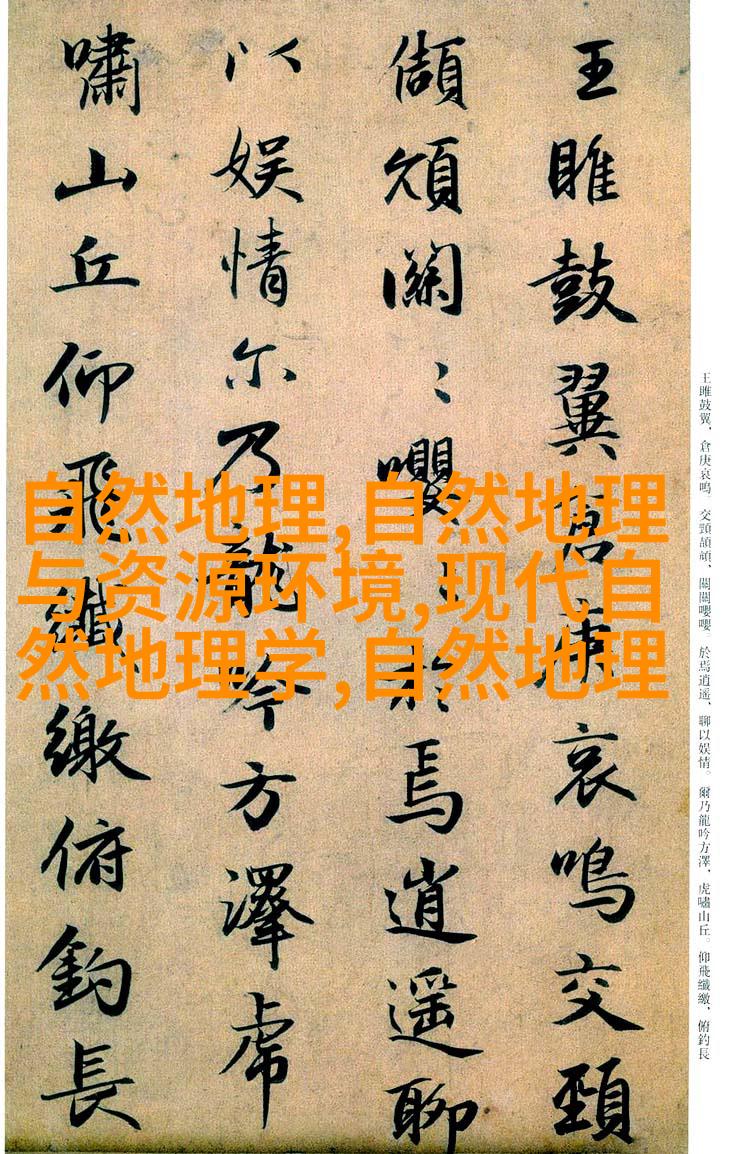 王雎鼓翼倉庚哀鳴交頸
頡頏關〻嚶〻於焉逍遥聊
以娱情尔乃龍吟方澤虎
嘯山丘仰飛纖繳俯釣長
自然地理,自然地理
与资源环境,现代自
然地理学,自然地理
王雎鼓翼，倉庚哀鳴。交頸頡頏，關關嚶嚶。於焉逍遥，聊以娱情。爾乃龍吟方澤，虎嘯山丘。仰飛纖繳，俯釣長